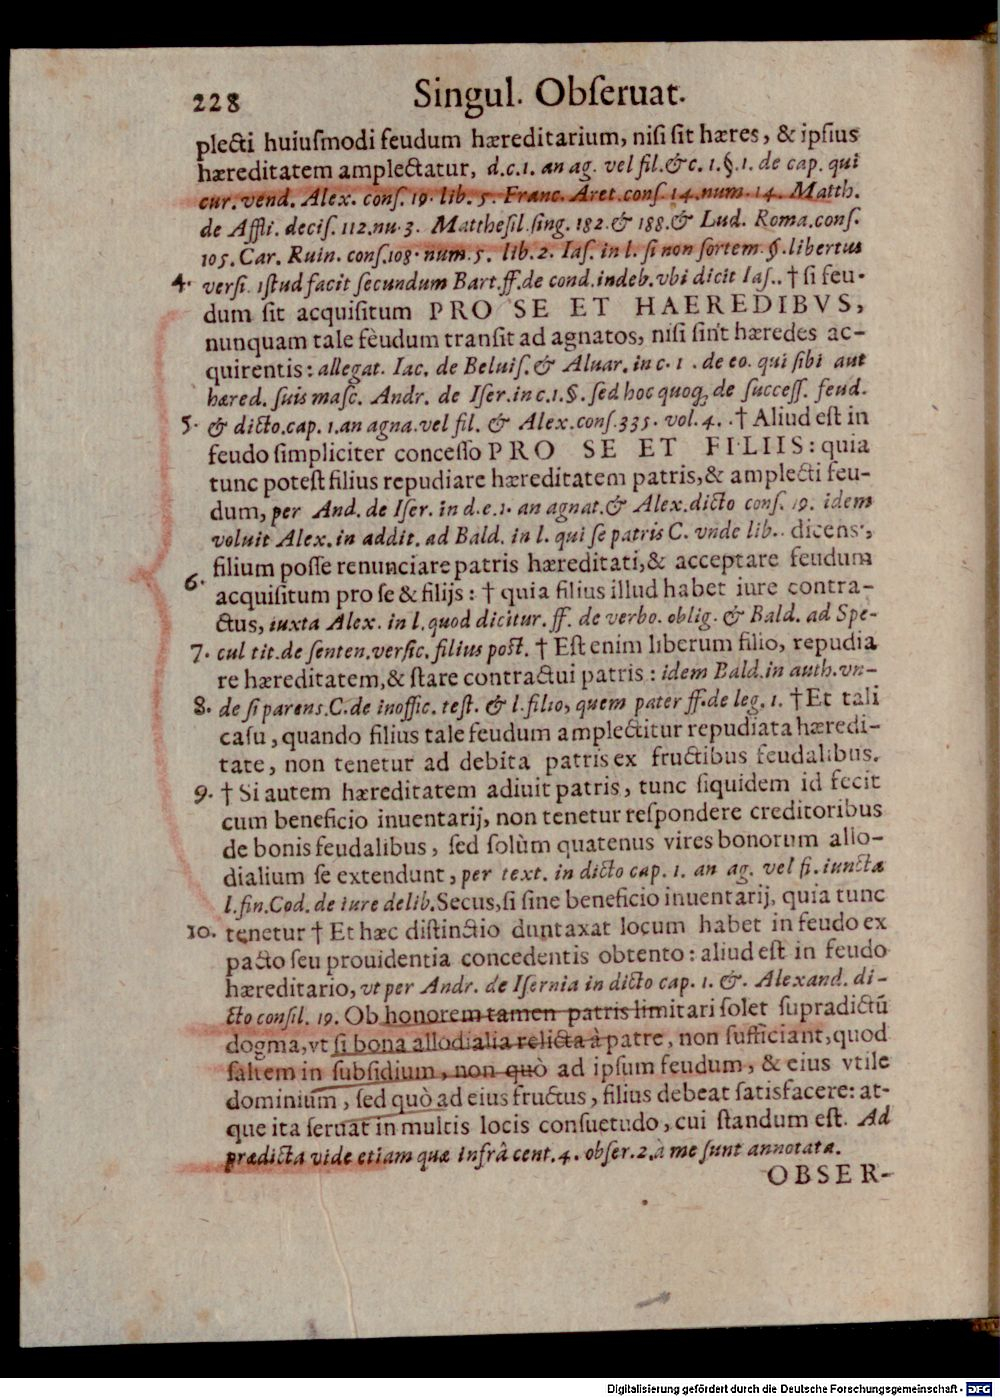 228 Singul. Obſeruat.
plecti huiuſmodi feudum hæreditarium, niſi ſit hæres, & ipſius
hæreditatem amplectatur, d.c.1. an ag. vel fil.&c. 1.§.1. de cap. qui
cur. vend. Alex. conſ. 19. lib. 5. Franc. Aret. conſ. 14. num. 14. Matth.
de Affli. deciſ. 112. nu. 3. Mattheſil. ſing. 182. & 188. & Lud. Roma. conſ.
105. Car. Ruin. conſ. 108. num. 5. lib. 2. Iaſ. in l. ſi non ſortem. §. libertus
4. verſi. iſtud facit ſecundum Bart. ff. de cond. indeb. vbi dicit Iaſ.. † ſi feu-
dum ſit acquiſitum PRO SE ET HAEREDIBVS,
nunquam tale fèudum tranſit ad agnatos, niſi ſint hæredes ac-
quirentis: allegat. Iac. de Beluiſ. & Aluar. in c. 1. de eo. qui ſibi aut
hæred. ſuis maſc. Andr. de Iſer. in c. 1. §. ſed hoc quoq; de ſucceſſ. feud.
5. & dicto. cap. 1. an agna. vel fil. & Alex. conſ. 335. vol. 4.. † Aliud eſt in
feudo ſimpliciter conceſſo PRO SE ET FILIIS: quia
tunc poteſt filius repudiare hæreditatem patris, & amplecti feu-
dum, per And. de Iſer. in d.e.1. an agnat. & Alex. dicto conſ. 19. idem
voluit Alex. in addit. ad Bald. in l. qui ſe patris C. vnde lib.. dicens,
filium poſſe renunciare patris hæreditati, & acceptare feudum
6. acquiſitum pro ſe & filijs: † quia filius illud habet iure contra-
ctus, iuxta Alex. in l. quod dicitur. ff. de verbo. oblig. & Bald. ad Spe-
7. cul tit. de ſenten. verſic. filius poſt. † Eſt enim liberum filio, repudia
re hæreditatem, & ſtare contractui patris: idem Bald. in auth. vn-
8. de ſi parens. C. de inoffic. teſt. & l. filio, quem pater ff. de leg. 1. † Et tali
caſu, quando filius tale feudum amplectitur repudiata hæredi-
tate, non tenetur ad debita patris ex fructibus feudalibus.
9. † Si autem hæreditatem adiuit patris, tunc ſiquidem id fecit
cum beneficio inuentarij, non tenetur reſpondere creditoribus
de bonis feudalibus, ſed ſolùm quatenus vires bonorum allo-
dialium ſe extendunt, per text. in dicto cap. 1. an ag. vel fi. iuncta
l. fin. Cod. de iure delib. Secus, ſi ſine beneficio inuentarij, quia tunc
10. tenetur † Et hæc diſtinctio duntaxat locum habet in feudo ex
pacto ſeu prouidentia concedentis obtento: aliud eſt in feudo
hæreditario, vt per Andr. de Iſernia in dicto cap. 1. &. Alexand. di-
cto conſil. 19. Ob honorem tamen patris limitari ſolet ſupradictū
dogma, vt ſi bona allodialia relicta à patre, non ſufficiant, quod
ſaltem in ſubſidium, non quò ad ipſum feudum, & eius vtile
dominium, ſed quò ad eius fructus, filius debeat ſatisfacere: at-
que ita ſeruat in multis locis conſuetudo, cui ſtandum eſt. Ad
prædicta vide etiam quæ infrâ cent. 4. obſer. 2. à me ſunt annotata.
OBSER-
Digitalisierung gefördert durch die Deutsche Forschungsgemeinschaft - DFG